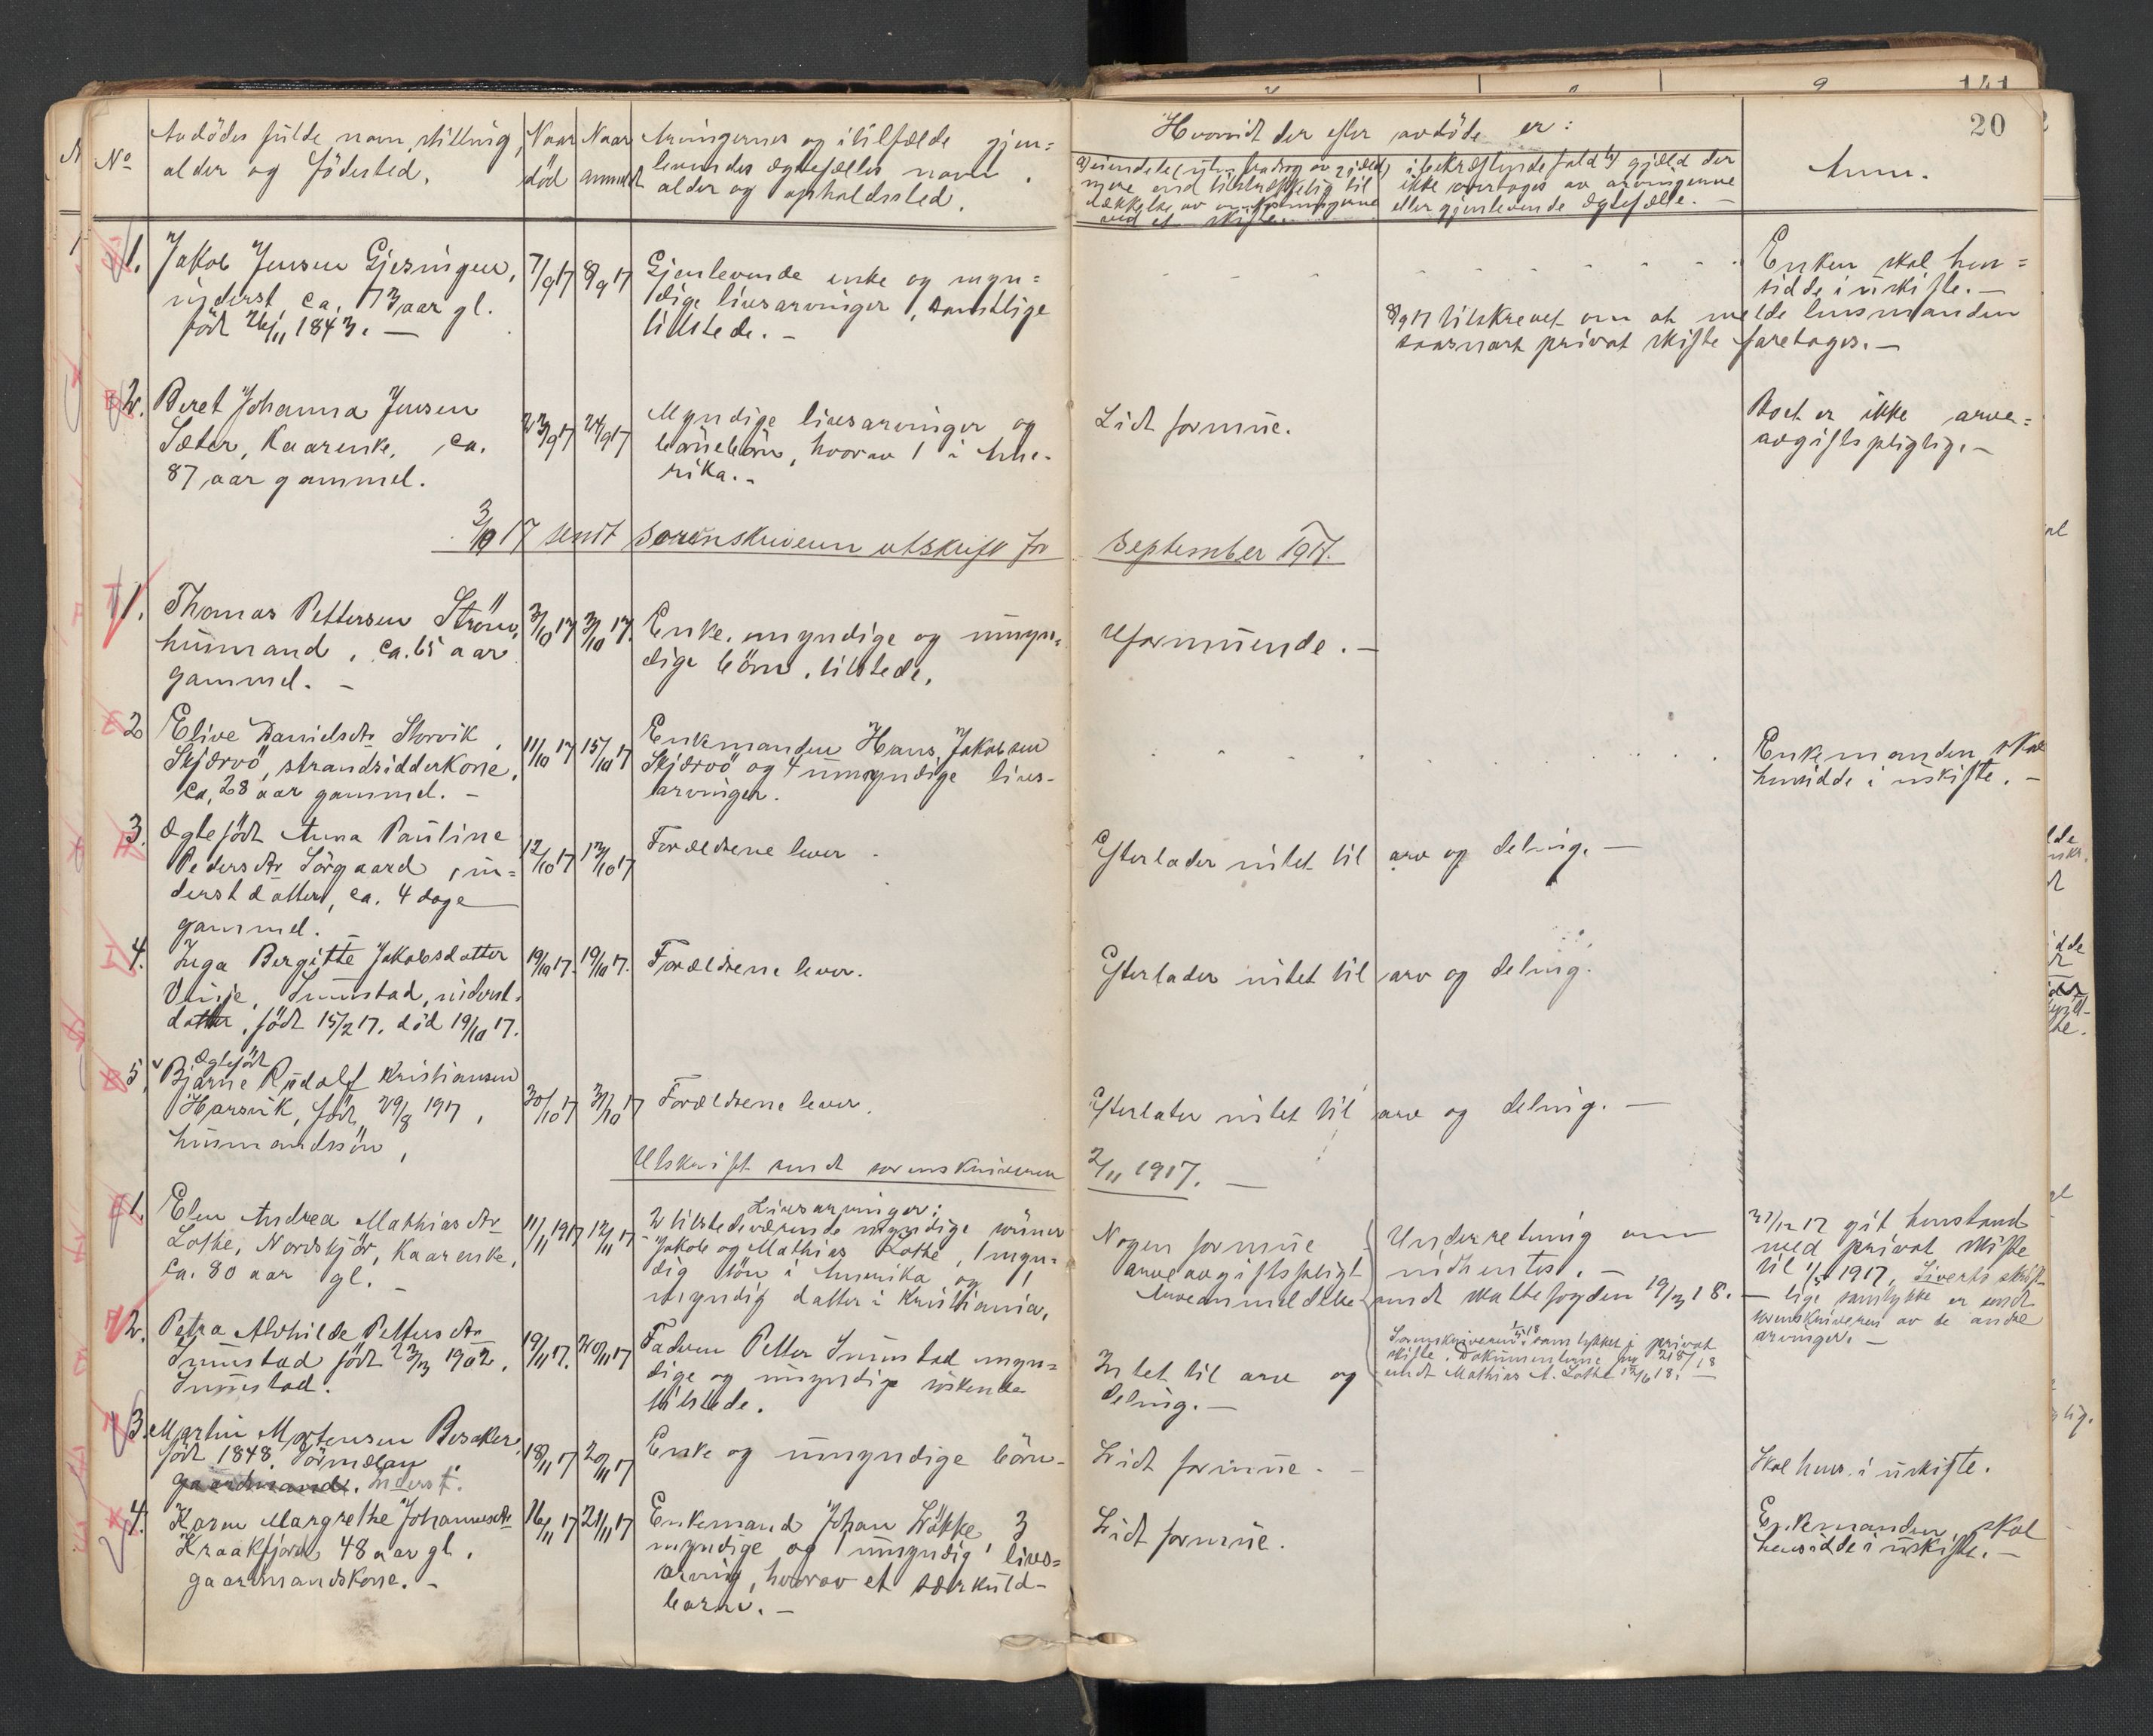 20
No
Avdödes fulde navn, stilling,
alder og födested.
Naar
död
Naar
anmeldt
Arvingernes og i tilfælde gjen=
levendes ægtefælles navn,
alder og opholdssted.
Hvorvidt der efter avdöde er:
a) eiendele (uten fradrag av gjæld)
mere end tilstrækkelig til
dækkelse av omkostningerne
ved et skifte.
i bekræftende fald b) gjæld der
ikke overtages av arvingerne
eller gjenlevende ægtefælle. -
Anm.
1. Jakob Jensen Gjesingen,
inderst, ca. 73 aar gl.
född 26/11 1843. -
7/9 17
8/9 17
Gjenlevende enke og myn=
dige livsarvinger, samtlige
tilstede. -
8/9 17 tilskrevet om at melde lensmanden
saasnart privat skifte foretages. -
Enken skal hen=
sidde i uskifte. -
2. Beret Johanna Jensen
Sæter, Kaarenke, ca.
87 aar gammel.
23/9 17
24/9 17
Myndige livsarvinger og
barnebörn, hvorav 1 i Ame-
rika. -
Lidt formue.
Boet er ikke arve=
avgiftspligtig. -
3/10 17 sendt Sorenskriveren utskrift for September 1917.
1. Thomas Pettersen Ström,
husmand, ca. 65 aar
gammel. -
3/10 17
3/10 17.
Enke, myndige og umyn=
dige börn, tilstede.
Uformuende. -
2 Elive Danielsdtr Storvik,
Skjærvö, strandsidderkone,
ca. 28 aar gammel. -
11/10 17
15/10 17
Enkemanden Hans Jakobsen
Skjærvö og 4 umyndige livs-
arvinger.
Enkemanden skal
hensidde i uskifte. -
3. Ægtefödt Anna Pauline
Pedersdtr Sörgaard, in=
derstdatter, ca. 4 dage
gammel. -
12/10 17
13/10 17
Forældrene lever.
Efterlader intet til arv og deling. -
4. Inga Bergitte Jakobsdatter
Vinje, Sumstad, inderst-
datter, född 15/2 17. död 19/10 17.
19/10 17.
19/10 17.
Forældrene lever.
Efterlader intet til arv og deling.
5. Ægtefödt
Bjarne Rudolf Kristiansen
Harsvik, född 29/8 1917,
husmandssön,
30/10 17
31/10 17
Forældrene lever.
Efterlater intet til arv og deling. -
Utskrift sendt sorenskriveren 2/11 1917. -
1. Elen Andrea Mathiasdtr
Lothe, Nordskjör, Kaarenke,
ca. 80 aar gl. -
11/11 1917
12/11 17
Livsarvinger:
2 tilstedeværende myndige sönner
Jakob og Mathias Lothe, 1 myn=
dig sön i Amerika og 1
myndig datter i Kristiania.
Nogen formue
arveavgiftspligt
Arveanmeldelse
Underretning om
indhentes. -
sendt skattefogden 19/3 18.
Sorenskriveren samtykket i privat
skifte. Dokumenterne
sendt Mathias A. Lothe 12/6 18. -
git henstand
med privat skifte
til 1/5 1917, Siverts skrift-
lige samtykke er sendt
sorenskriveren av de andre
arvinger. -
2. Petra Alvhilde Pettersdtr
Sumstad född 23/3 1902,
Sumstad.
19/11 17.
20/11 17
Faderen Petter Sumstad myn=
dige og umyndige söskende
tilstede.
Intet til arv og
deling. -
3. Martin Mortensen Besaker,
född 1848. Sörmelan
gaardmand. Inderst.
18/11 17
20/11 17
Enke og umyndige börn -
Lidt formue. -
Skal hens. i uskifte.
4. Karen Margrethe Johannesdtr
Kraakfjord, 48 aar gl.
gaardmandskone. -
16/11 17
21/11 17
Enkemand Johan Løkke, 3
myndige og 1 umyndig livs=
arving, hvorav et særkuld-
barn. -
Lidt formue.
Enkemanden skal
hensidde i uskifte. -